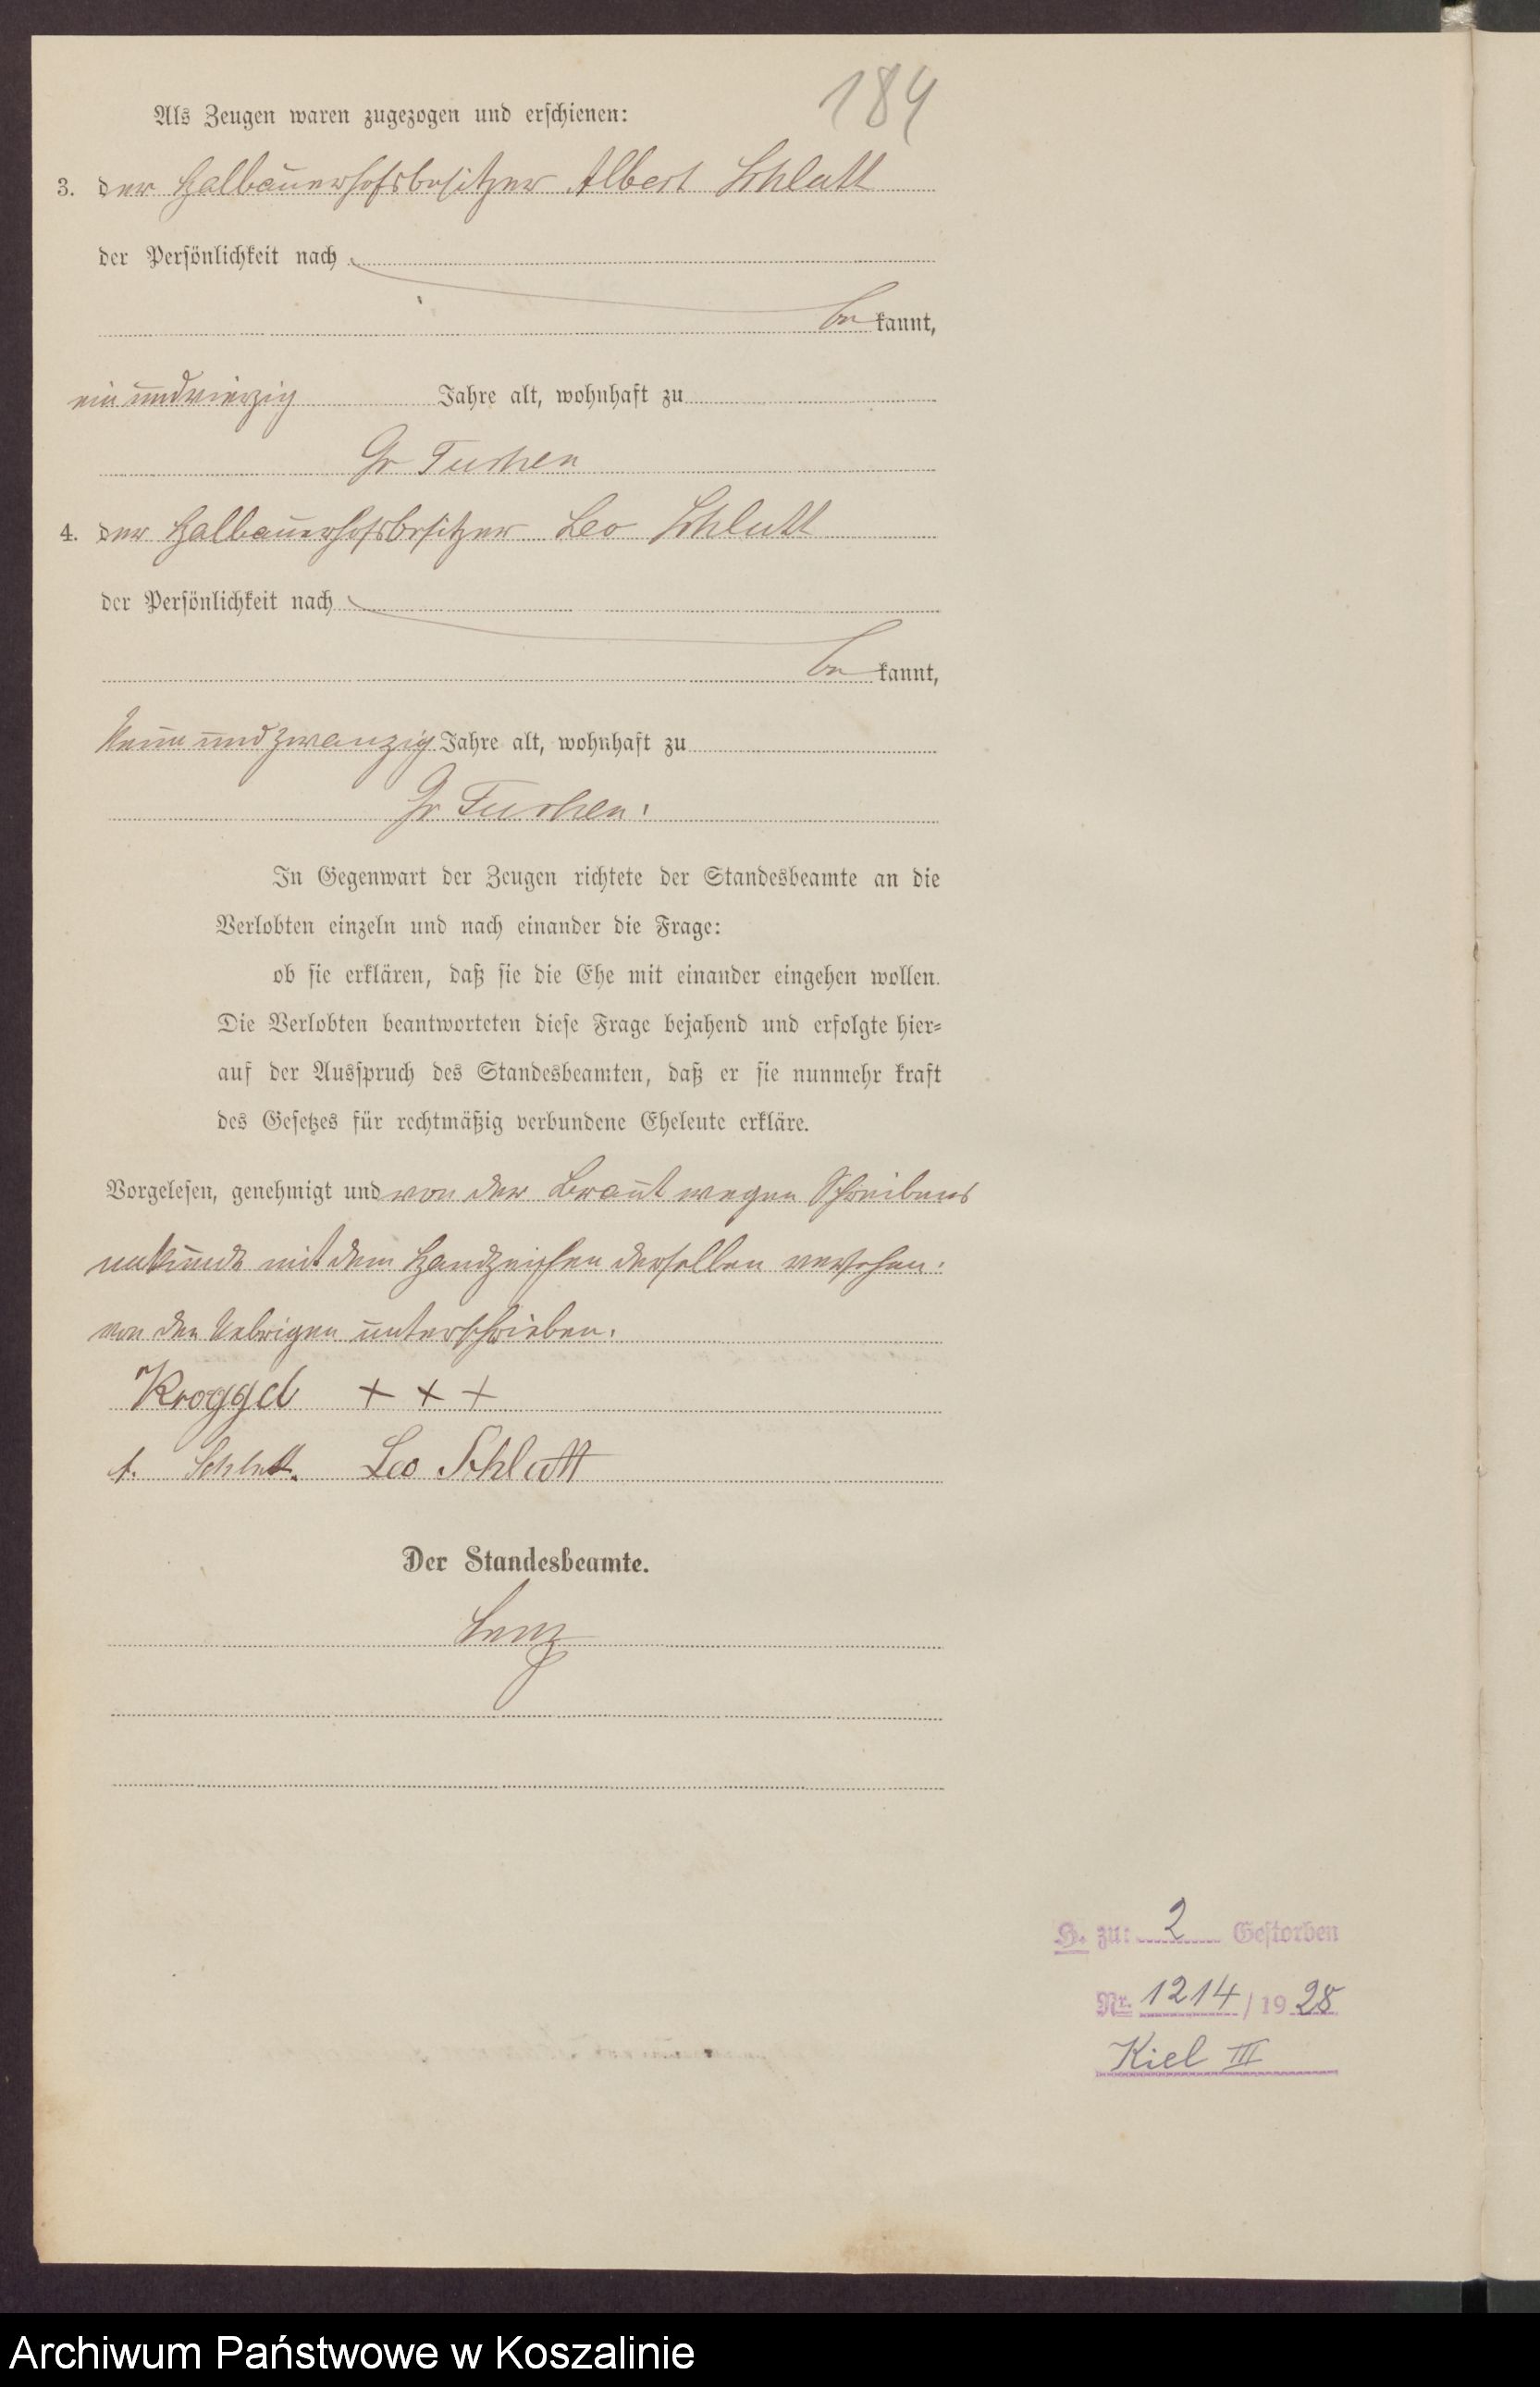 184
Als Zeugen waren zugezogen und erschienen:
3. der Halbauerhofsbesitzer Albert Schlutt
der Persönlichkeit nach
be kannt,
ein und vierzig Jahre alt, wohnhaft zu
Gr Tuchen
4. der Halbauerhofsbesitzer Leo Schlutt
der Persönlichkeit nach
be kannt,
Neun und zwanzig Jahre alt, wohnhaft zu
Gr Tuchen.
In Gegenwart der Zeugen richtete der Standesbeamte an die
Verlobten einzeln und nach einander die Frage:
ob sie erklären, daß sie die Ehe mit einander eingehen wollen.
Die Verlobten beantworteten diese Frage bejahend und erfolgte hier-
auf der Ausspruch des Standesbeamten, daß er sie nunmehr kraft
des Gesetzes für rechtmäßig verbundene Eheleute erkläre.
Vorgelesen, genehmigt und von der Braut wegen Schreibens
unkunde mit dem Handzeichen derselben versehen.
von den Uebrigen unterschrieben.
Kroggel + + +
A. Schlutt. Leo Schlutt
Der Standesbeamte.
Lenz
H. zu: 2 Gestorben
Nr. 1214 / 19 28
Kiel III
Archiwum Państwowe w Koszalinie